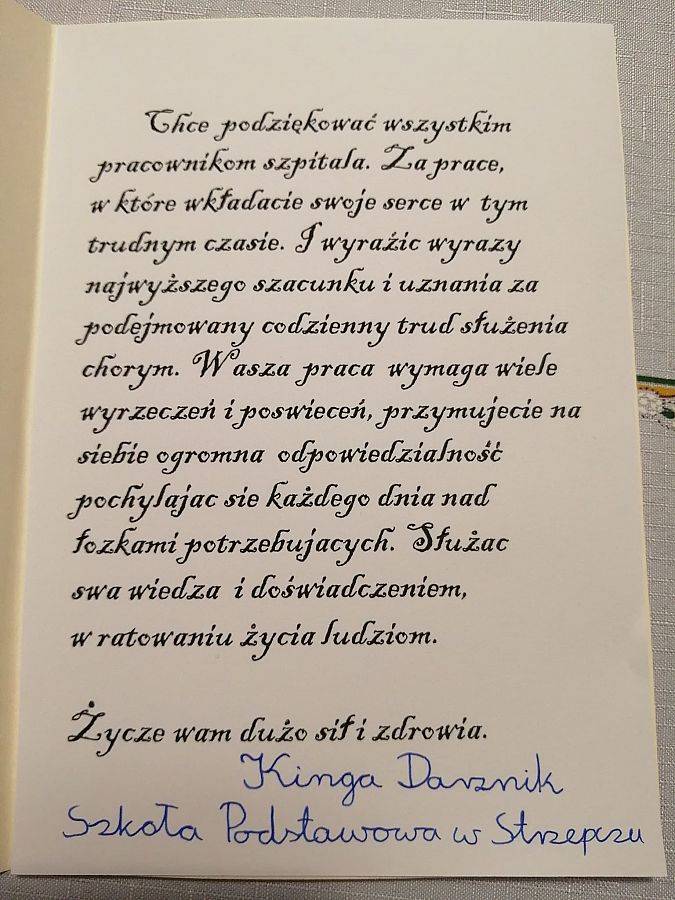 Chce podziękować wszystkim
pracownikom szpitala. Za prace,
w które wkładacie swoje serce w tym
trudnym czasie. I wyraźic wyrazy
najwyższego szacunku i uznania za
podejmowany codzienny trud służenia
chorym. Wasza praca wymaga wiele
wyrzeczeń i poswieceń, przymujecie na
siebie ogromna odpowiedzialność
pochylajac sie każdego dnia nad
łozkami potrzebujacych. Służac
swa wiedza i doświadczeniem,
w ratowaniu życia ludziom.
Życze wam dużo sił i zdrowia.
Kinga Darznik
Szkoła Podstawowa w Strzepczu